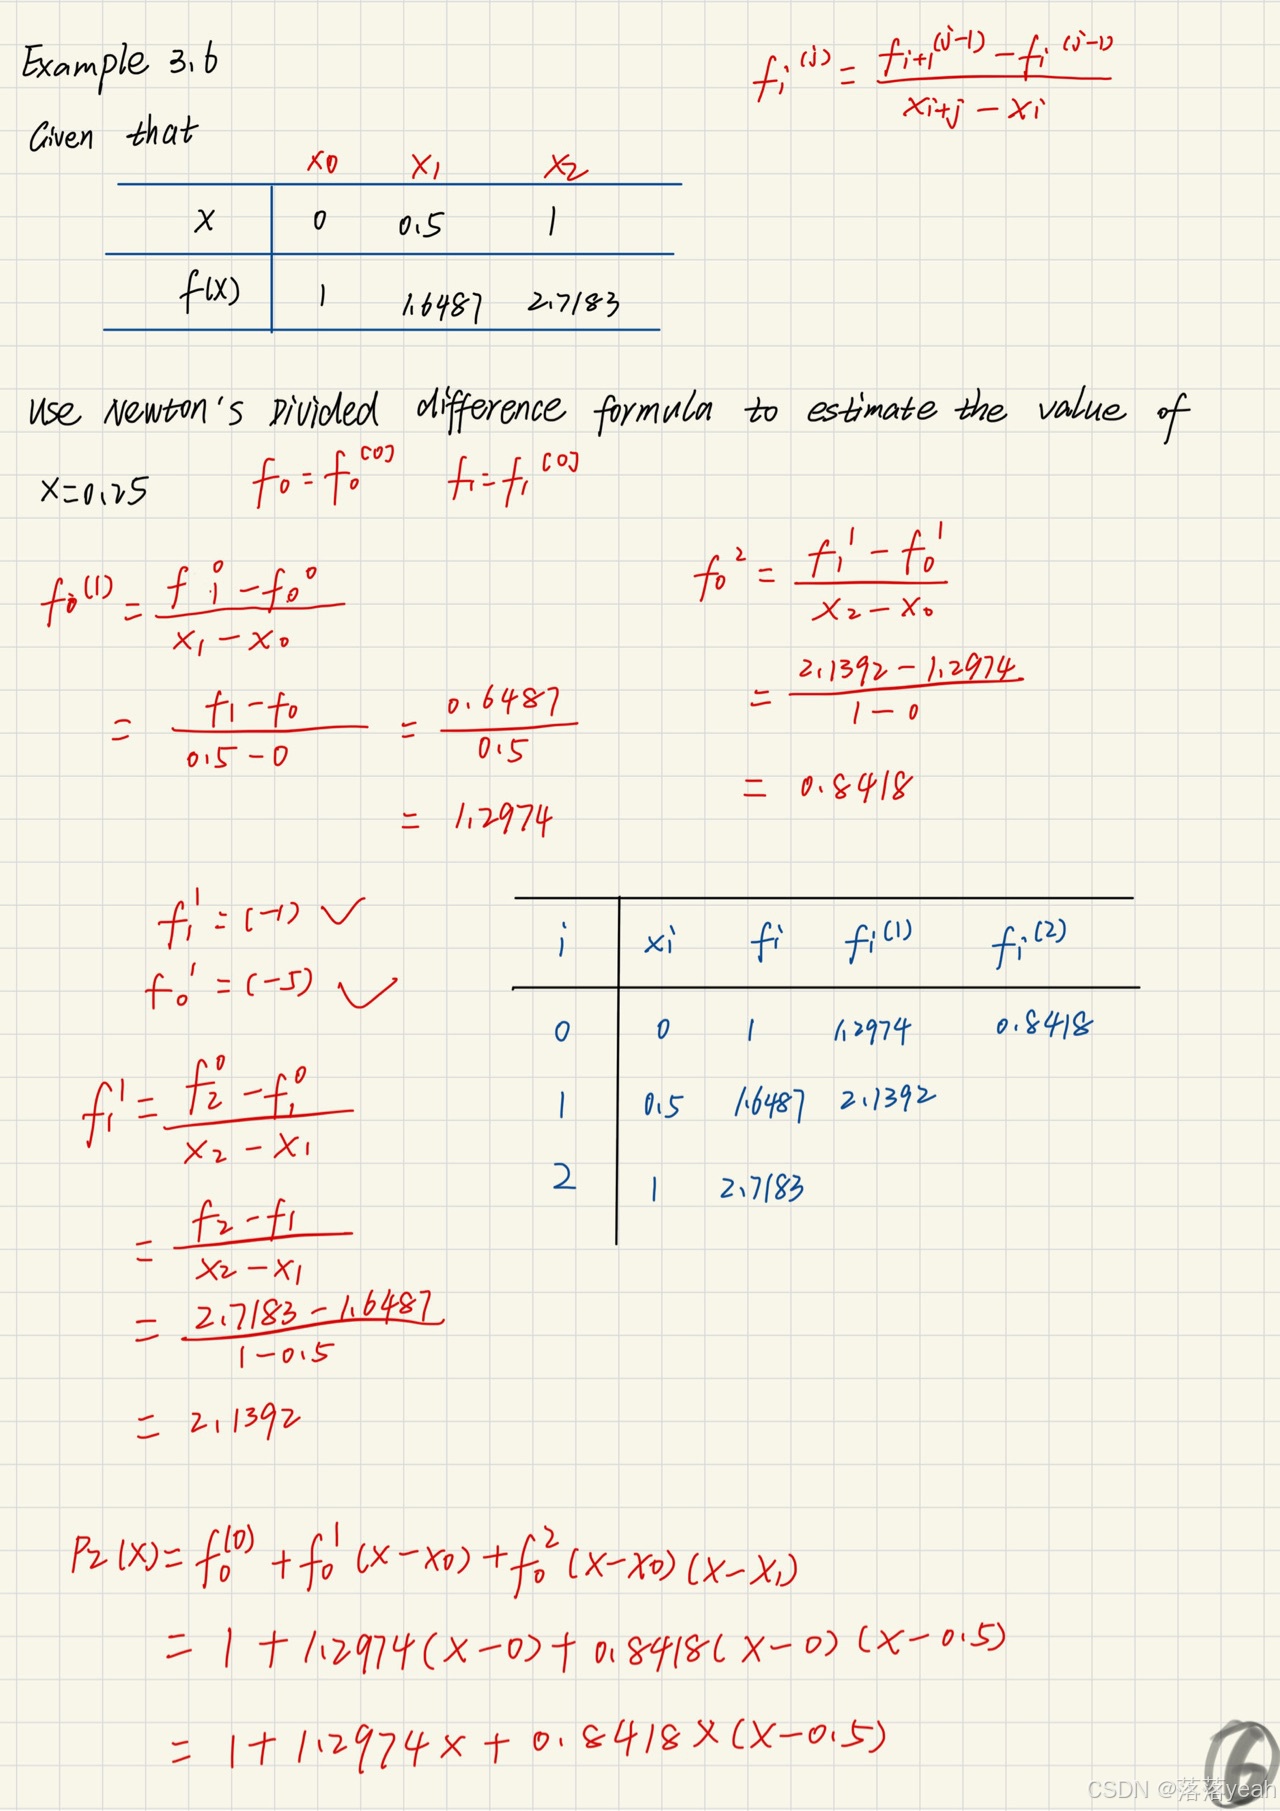 Example 3.6
fi^(j) = (fi+1^(j-1) - fi^(j-1)) / (xi+j - xi)
Given that
x0 x1 x2
x 0 0.5 1
f(x) 1 1.6487 2.7183
Use Newton's Divided difference formula to estimate the value of
x=0.25 f0 = f0^[0] f1 = f1^[0]
f0^(1) = (f1^0 - f0^0) / (x1 - x0)
= (f1 - f0) / (0.5 - 0) = 0.6487 / 0.5
= 1.2974
f0^2 = (f1^1 - f0^1) / (x2 - x0)
= (2.1392 - 1.2974) / (1 - 0)
= 0.8418
f1^1 = (-1) ✓
f0^1 = (-5) ✓
i xi fi fi^(1) fi^(2)
0 0 1 1.2974 0.8418
1 0.5 1.6487 2.1392
2 1 2.7183
f1^1 = (f2^0 - f1^0) / (x2 - x1)
= (f2 - f1) / (x2 - x1)
= (2.7183 - 1.6487) / (1 - 0.5)
= 2.1392
P2(x) = f0^(0) + f0^1 (x - x0) + f0^2 (x - x0) (x - x1)
= 1 + 1.2974 (x - 0) + 0.8418 (x - 0) (x - 0.5)
= 1 + 1.2974x + 0.8418x (x - 0.5)
6
CSDN @落落yeah